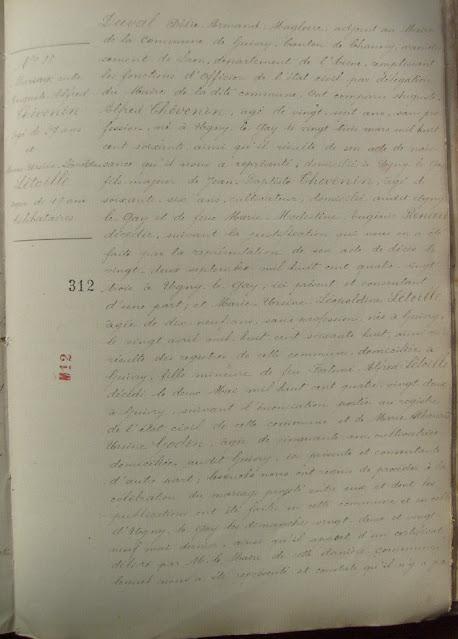 Duval Désiré Armand Magloire, adjoint au Maire
de la commune de Guivry, canton de Chauny, arrondis
sement de Laon, département de l'Aisne, remplissant
les fonctions d'Officier de l'état civil par délégation
du Maire de la dite commune. Ont comparu Auguste
Alfred Thévenin, agé de vingt huit ans, sans pro
fession, né à Ugny le Gay le vingt trois mars mil huit
cent soixante ainsi qu'il résulte de son acte de nais
sance qu'il nous a représenté, domicilié à Ugny le Gay
fils majeur de Jean Baptiste Thevenin, agé de
soixante six ans, cultivateur, domicilié audit Ugny
le Gay et de feue Marie Modestine Eugénie
décédée, suivant la justification qui nous en a été
faite par la représentation de son acte de décès le
vingt deux septembre mil huit cent quatre vingt
trois à Ugny le Gay, ici présent et consentant
d'une part; et Marie Ursine Léopoldine Létoille
agée de dix neuf ans, sans profession, née à Guivry
le vingt avril mil huit cent soixante huit, ainsi qu'il
résulte des registres de cette commune, domiciliée à
Guivry, fille mineure de feu Alfred Létoille
décédé le deux Mai mil huit cent quatre vingt deux
à Guivry, suivant l'énonciation portée au registre
de l'état civil de cette commune et de Marie
Ursine agée de cinquante ans cultivatrice
domiciliée audit Guivry, ici présente et consentante
d'autre part; lesquels nous ont requis de procéder à la
célébration du mariage projeté entre eux, et dont les
publications ont été faites en cette commune et en celle
d'Ugny le Gay les dimanches vingt deux et vingt
neuf mai dernier, ainsi qu'il appert d'un certificat
délivré par M. le Maire de cette dernière commune
lequel nous a été représenté et constate qu'il n'y a pas
N° 11
Mariage entre
Auguste Alfred
Thévenin
agé de ans
et
Marie Ursine Léopoldine
Létoille
agée de 19 ans
célibataires
312
M12